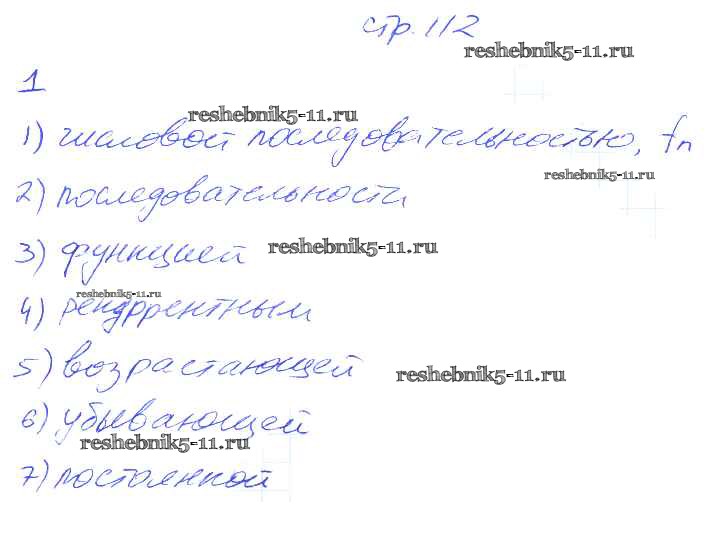 стр. 112
reshebnik5-11.ru
1
reshebnik5-11.ru
1) числовой последовательностью, fn
reshebnik5-11.ru
2) последовательности
3) функцией
reshebnik5-11.ru
reshebnik5-11.ru
4) рекуррентным
5) возрастающей
reshebnik5-11.ru
6) убывающей
reshebnik5-11.ru
7) постоянной